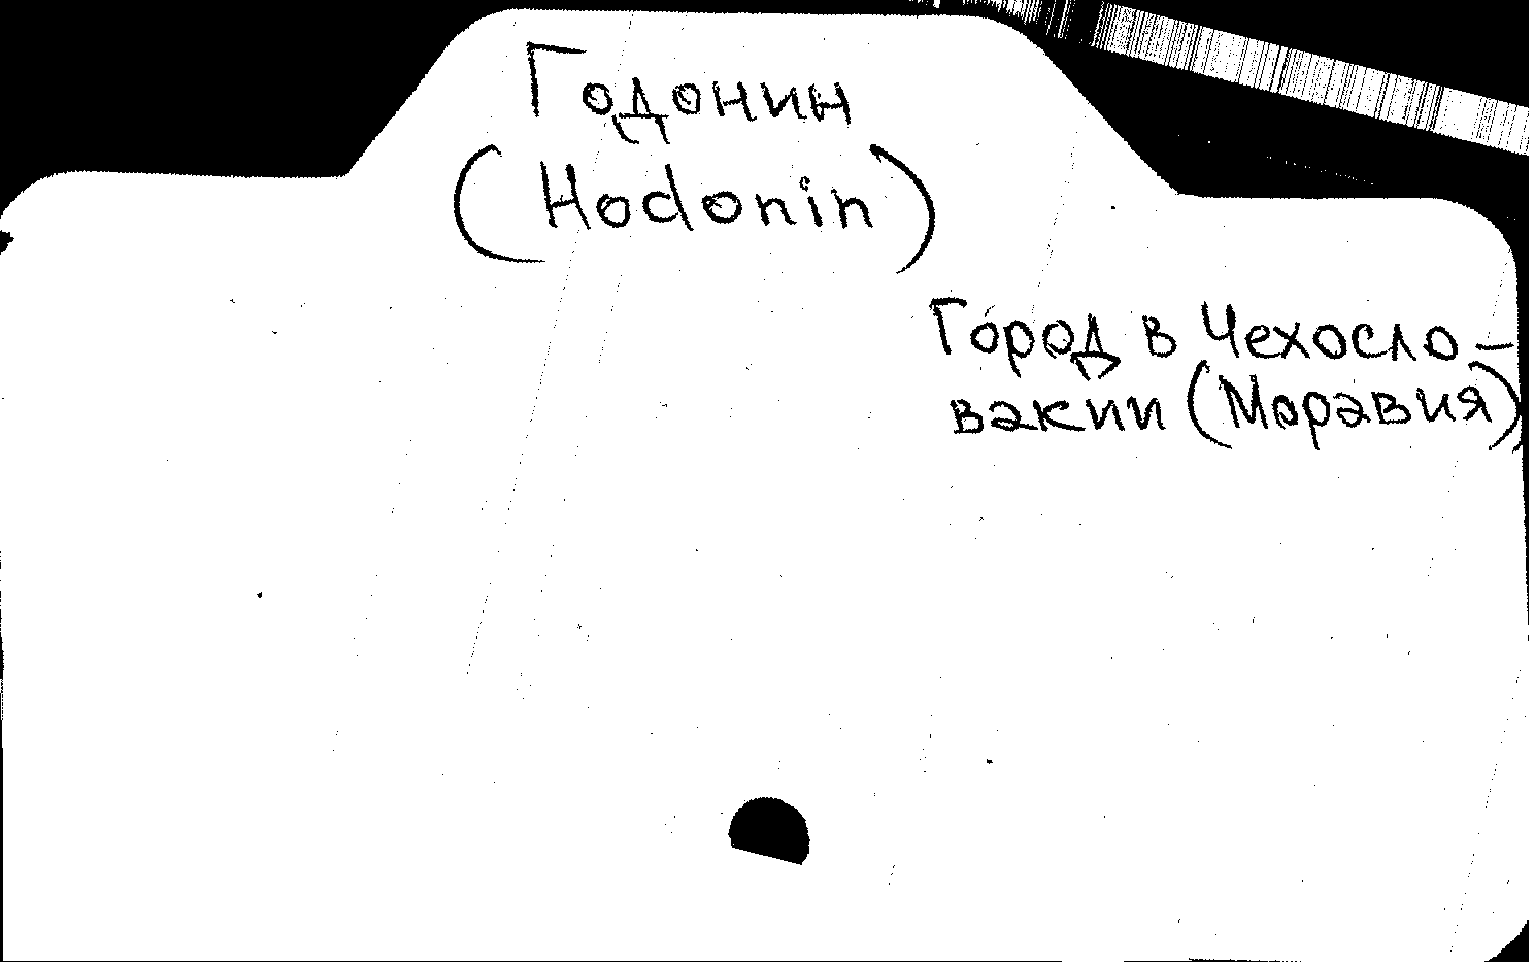 Годонин
(Hodonin)
Город в Чехосло-
вакии (Моравия)